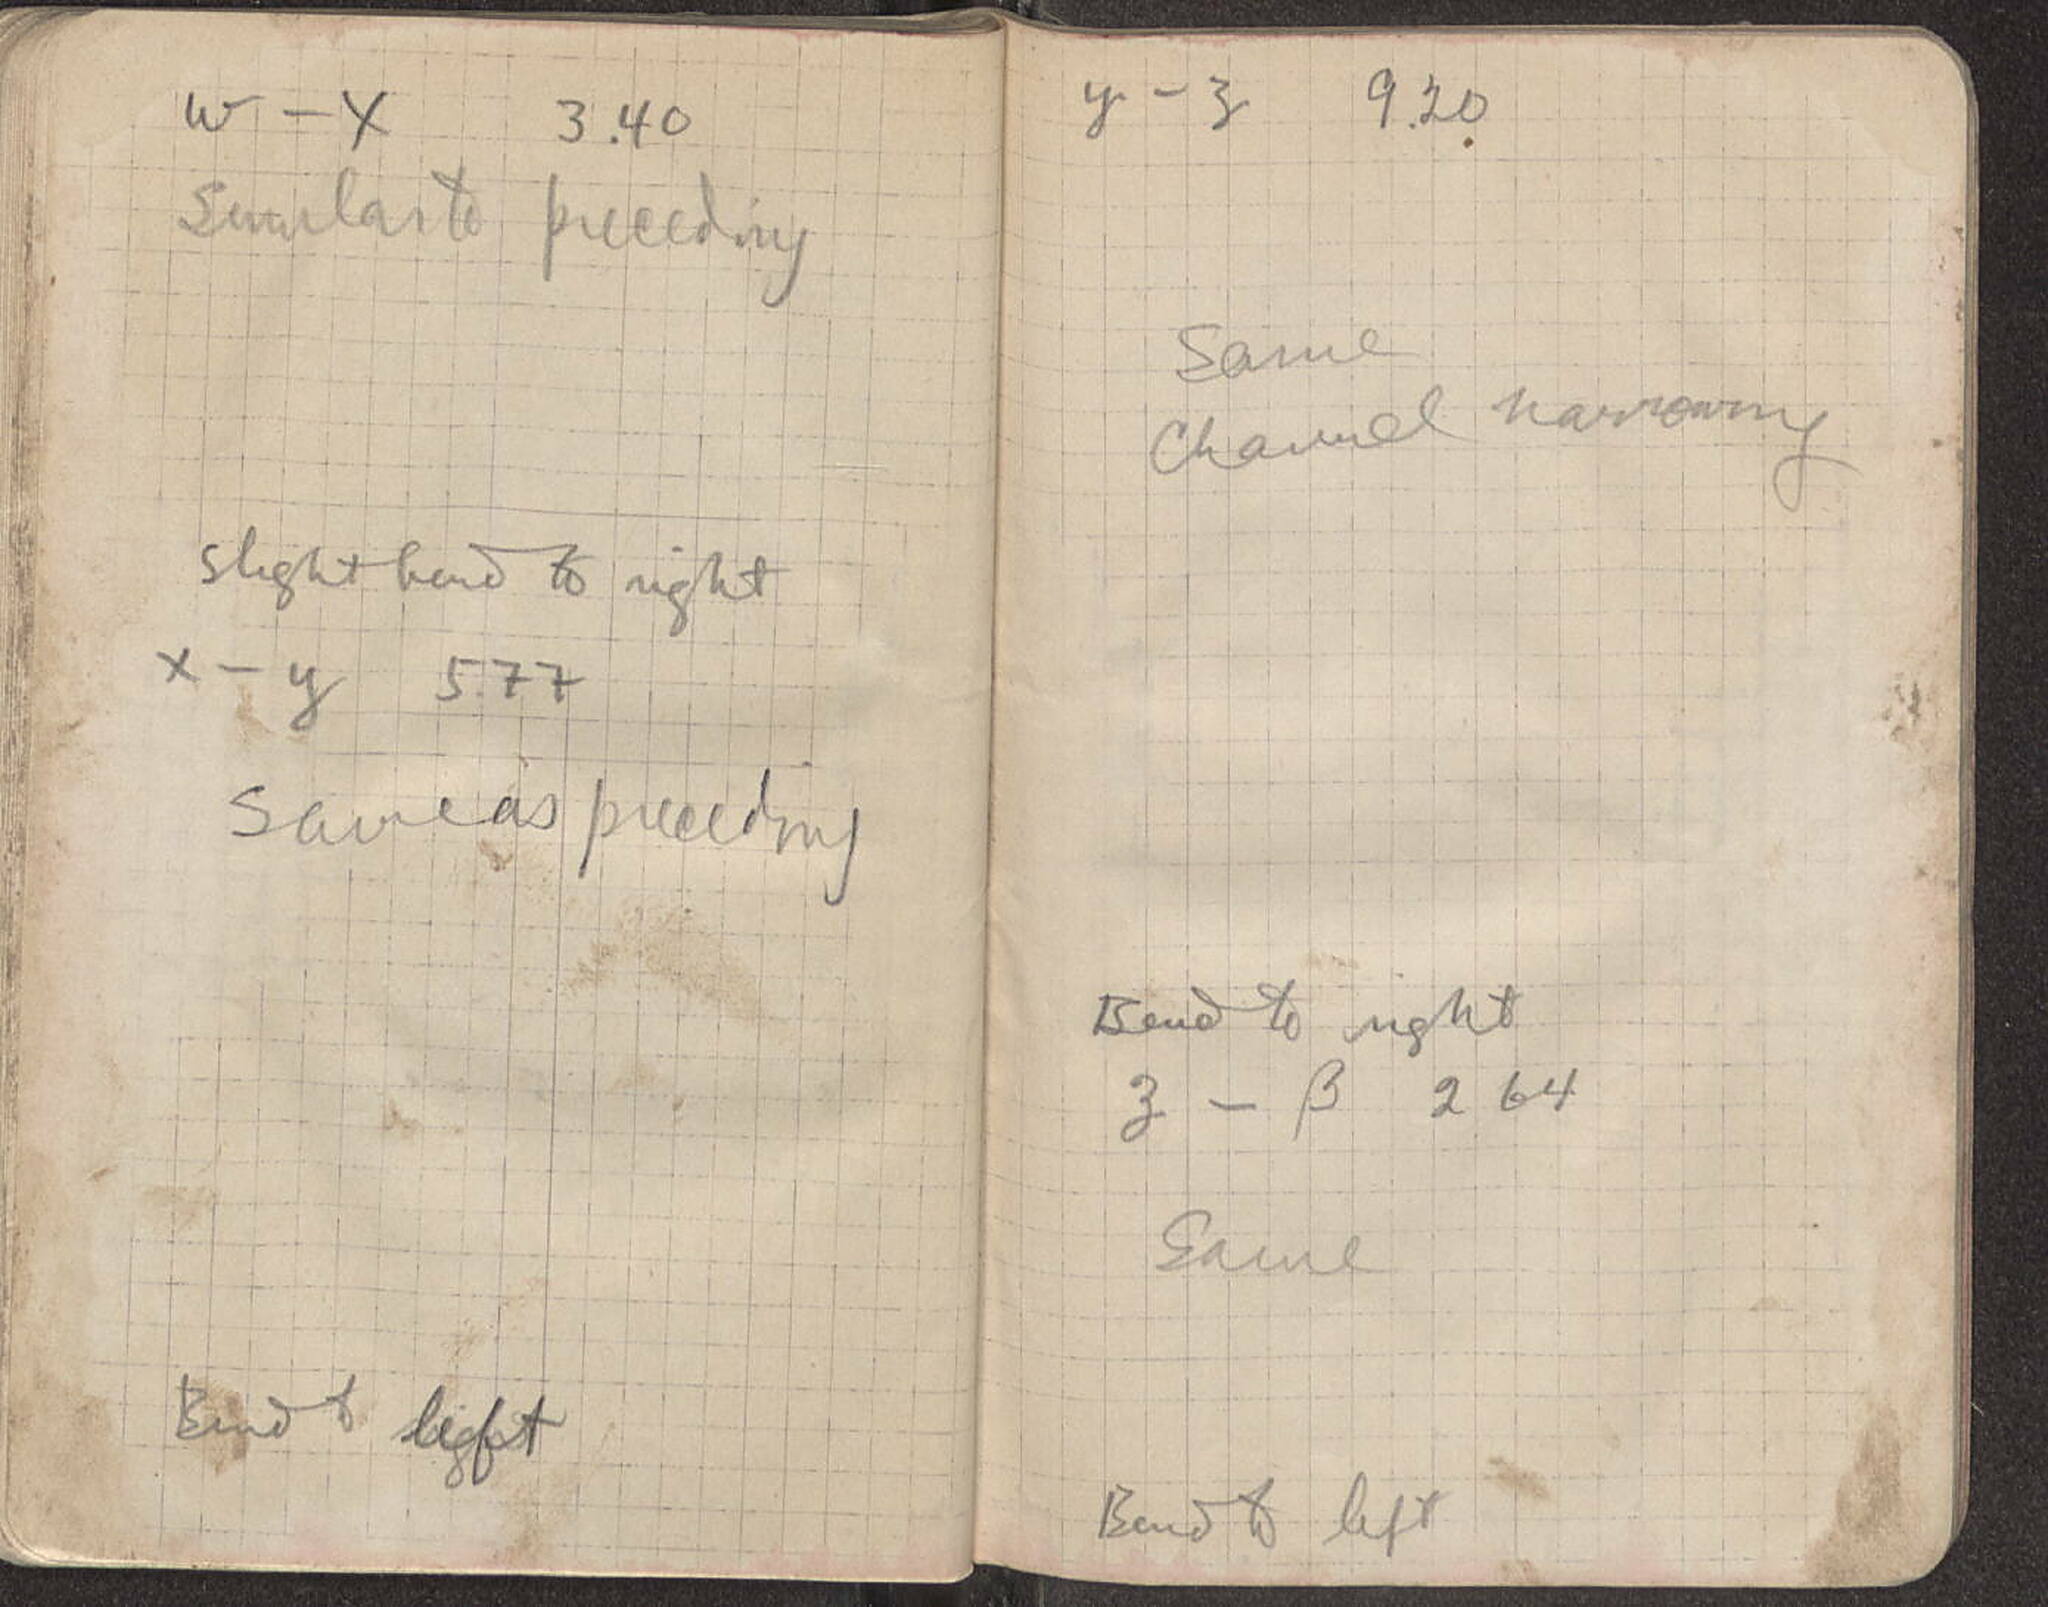 w - X 3.40
Similar to preceding
Slight bend to right
x - y 5.77
Same as preceding
Bend to left
y - z 9.20
Same
Channel narrowing
Bend to right
z - β 2 64
Same
Bend to left